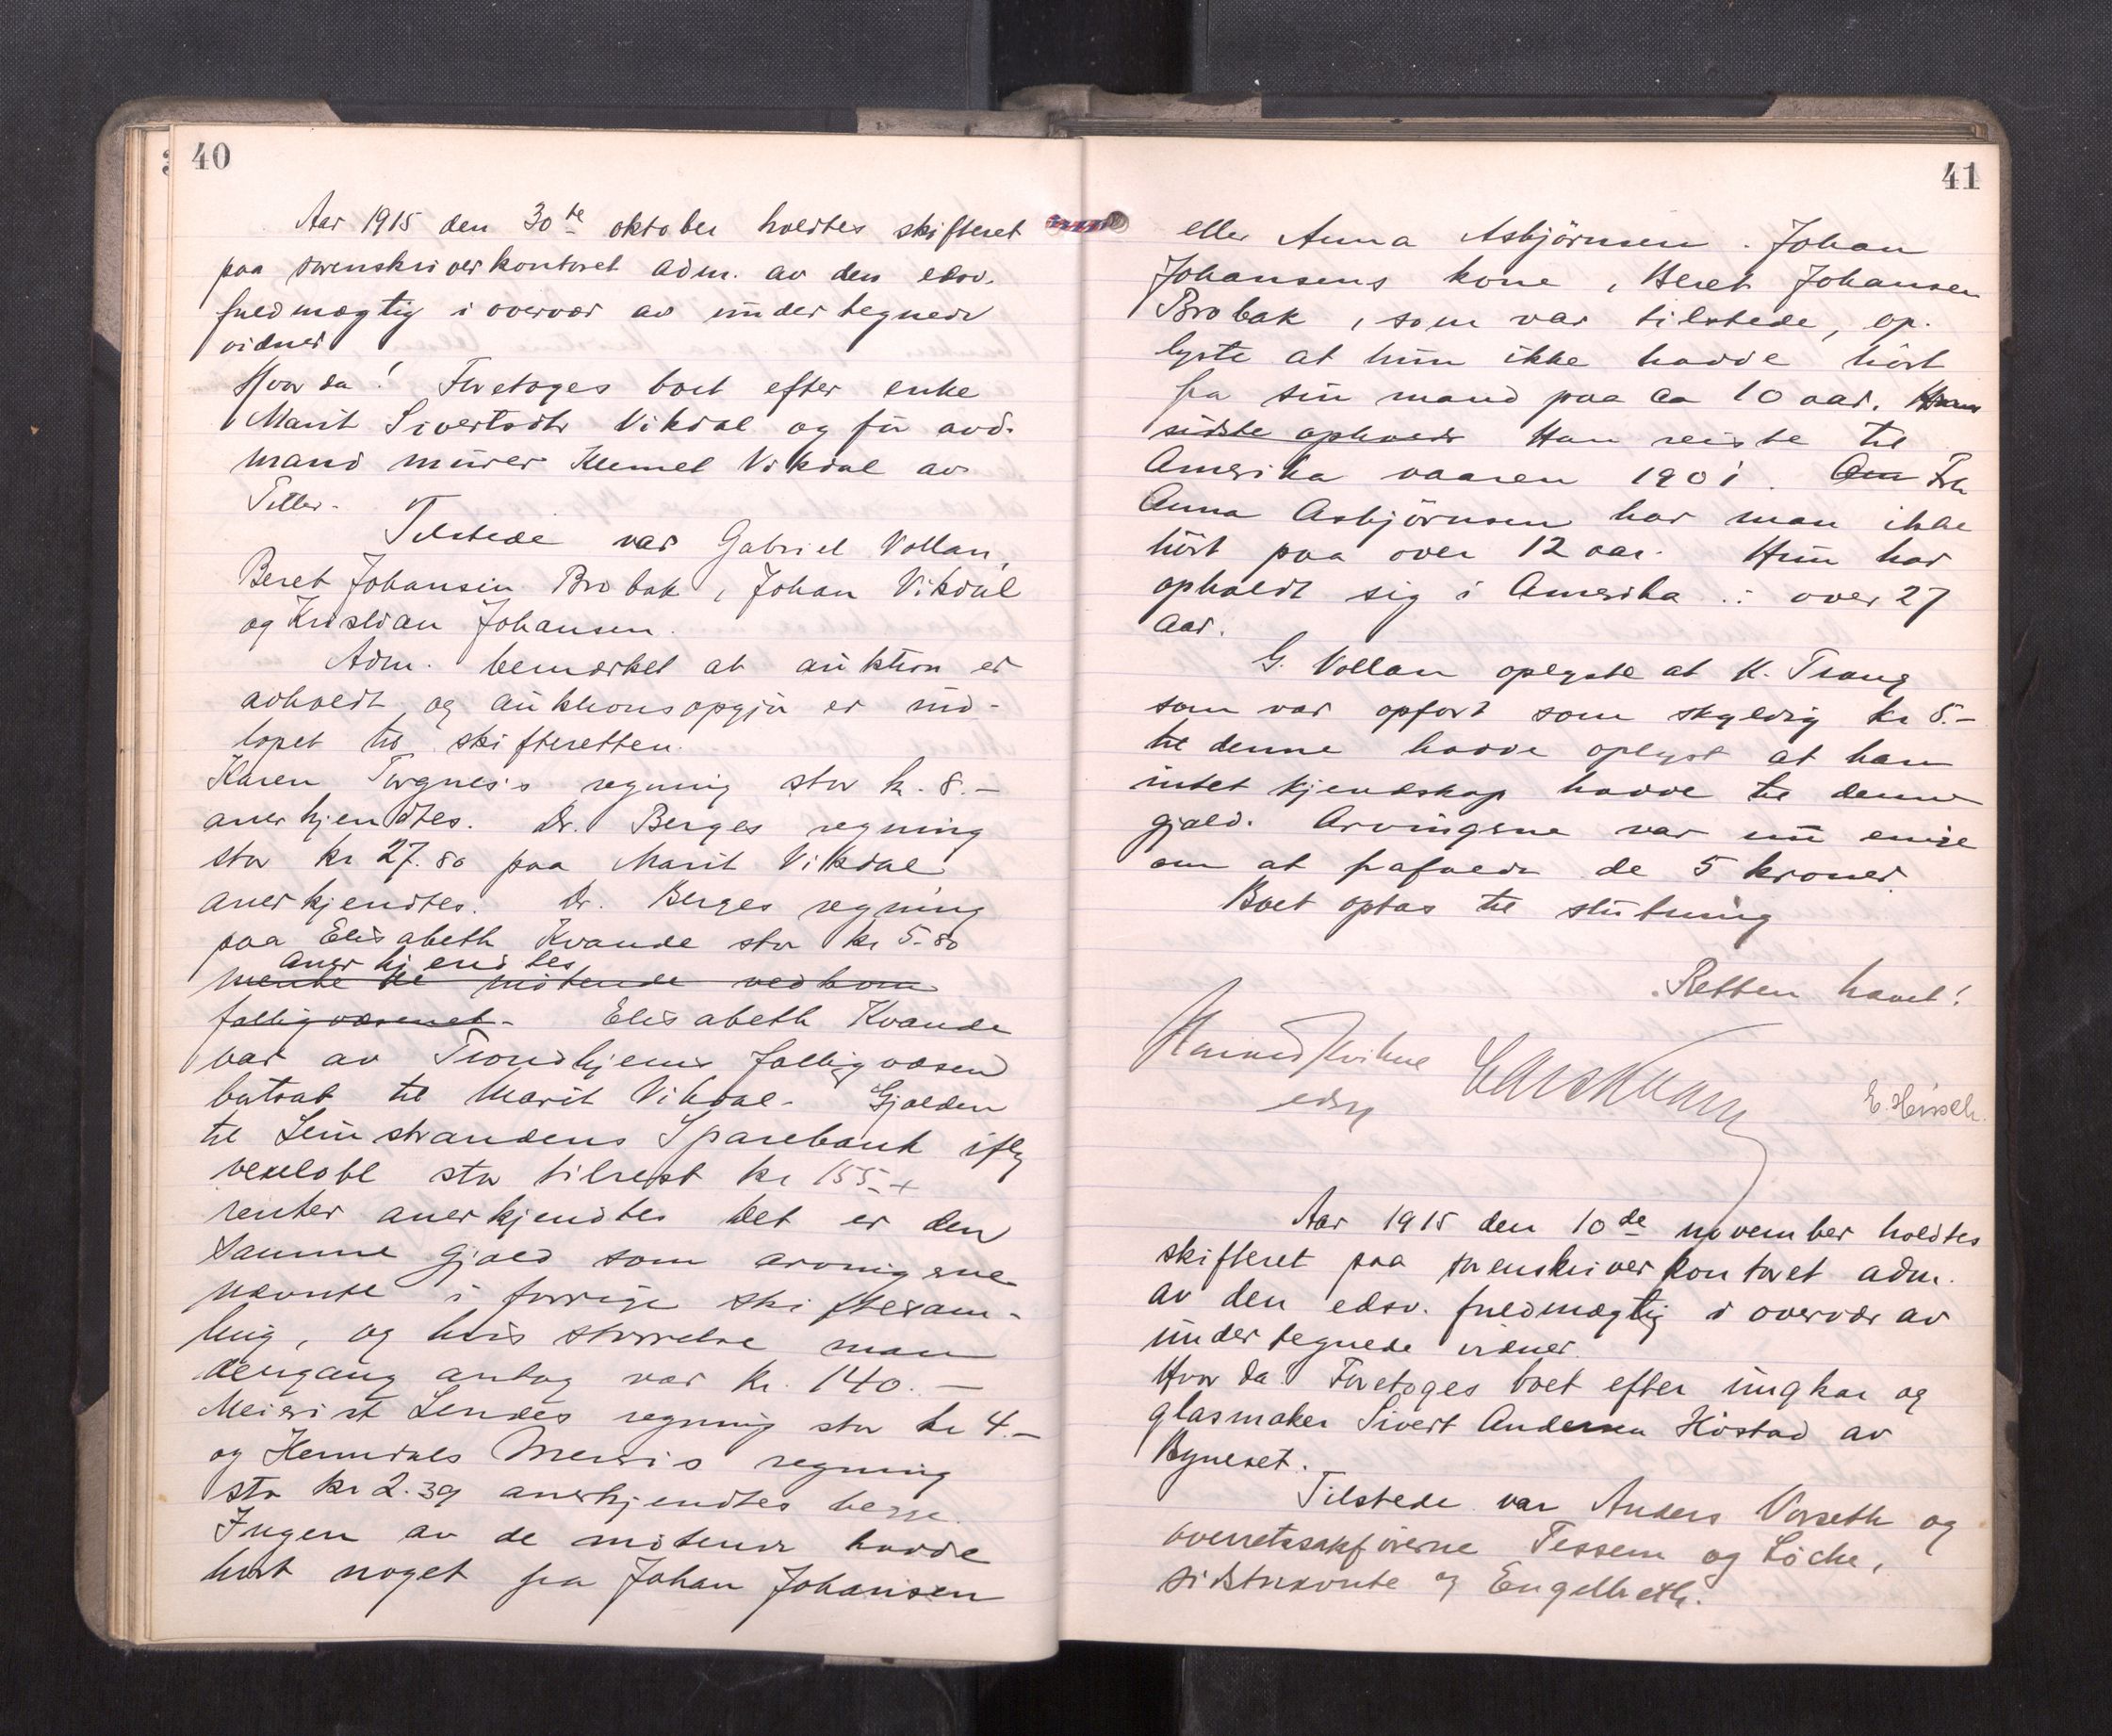 40
Aar 1915 den 30te oktober holdtes skifteret
paa sorenskriverkontoret adm. av den edsv.
fuldmægtig i overvær av undertegnede
vidner
Hvorda! Foretoges boet efter enke
Marit Sivertsdtr Vikdal og før avd.
mand murer Klemet Vikdal av
Tiller.
Tilstede var Gabriel Vollan,
Beret Johansen Brobak, Johan Vikdal
og Kristian Johansen.
Adm. bemærket at auktion er
avholdt og auktionsopgjør er ind-
løpet til skifteretten.
Karen regning stor kr. 8.-
anerkjendtes. Dr. Berges regning
stor kr 27.80 paa Marit Vikdal
anerkjendtes. Dr. Berges regning
paa Elisabeth Kvande stor kr 5.80
anerkjendtes
mente de møtende vedkom
fattigvæsenet. Elisabeth Kvande
var av Trondhjems fattigvæsen
bortsat til Marit Vikdal. Gjælden
til Leinstrandens Sparebank iflg
vexelobl stor tilrest kr 155.- +
renter anerkjendtes Det er den
samme gjæld som arvingerne
nævnte i forrige skiftesam-
ling, og hvis størrelse man
dengang antog var kr. 140.-
Meierist Lendes regning stor kr 4.-
og Heimdals Meieris regning
stor kr 2.39 anerkjendtes begge.
Ingen av de møtende havde
hørt noget fra Johan Johansen
41
eller Anna Asbjörnsen. Johan
Johansens kone, Beret Johansen
Brobak, som var tilstede, op-
lyste at hun ikke havde hört
fra sin mand paa ca 10 aar. Hans
sidste ophold Han reiste til
Amerika vaaren 1901. Om Fra
Anna Asbjörnsen har man ikke
hört paa over 12 aar. Hun har
opholdt sig i Amerika i over 27
aar.
G. Vollan oplyste at K. Trang
som var opført som skyldig kr 5.-
til denne havde oplyst at han
intet kjendskap havde til denne
gjæld. Arvingerne var nu enige
om at frafalde de 5 kroner.
Boet optas til slutning
Retten hævet!
E. Hirsch.
Aar 1915 den 10de november holdtes
skifteret paa sorenskriverkontoret adm.
av den edsv. fuldmægtig i overvær av
undertegnede vidner.
Hvorda Foretoges boet efter ungkar og
glasmaker Sivert Andersen Höstad av
Byneset.
Tilstede var Anders Vorseth og
overretssakförerne Tessem og Löche,
sidstnævnte og Engelbreth.